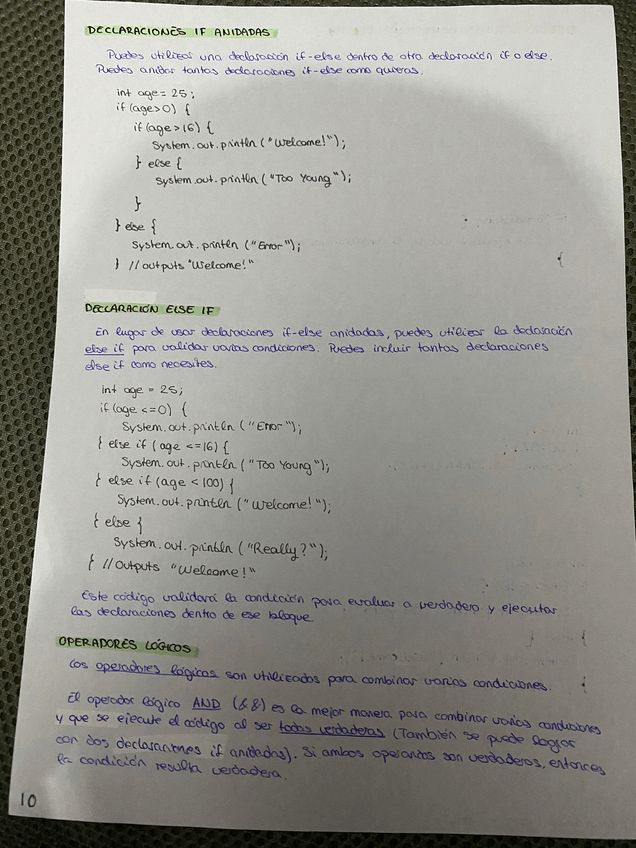 DECLARACIONES IF ANIDADAS
Puedes utilizar una declaración if-else dentro de otra declaración if o else.
Puedes anidar tantas declaraciones if-else como quieras.
int age = 25;
if (age>0) {
if (age>16) {
System.out.println ("Welcome!");
} else {
System.out.println ("Too Young");
}
} else {
System.out.println ("Error");
} // outputs "Welcome!"
DECLARACIÓN ELSE IF
En lugar de usar declaraciones if-else anidadas, puedes utilizar la declaración
else if para validar varias condiciones. Puedes incluir tantas declaraciones
else if como necesites.
int age = 25;
if (age <=0) {
System.out.println ("Error");
} else if (age <=16) {
System.out.println ("Too Young");
} else if (age < 100) {
System.out.println ("Welcome!");
} else {
System.out.println ("Really?");
} // Outputs "Welcome!"
Este código validará la condición para evaluar a verdadero y ejecutar
las declaraciones dentro de ese bloque.
OPERADORES LÓGICOS
Los operadores lógicos son utilizados para combinar varias condiciones.
El operador lógico AND (&&) es la mejor manera para combinar varias condiciones
y que se ejecute el código al ser todas verdaderas (También se puede lograr
con dos declaraciones if anidadas). Si ambos operandos son verdaderos, entonces
la condición resulta verdadera.
10